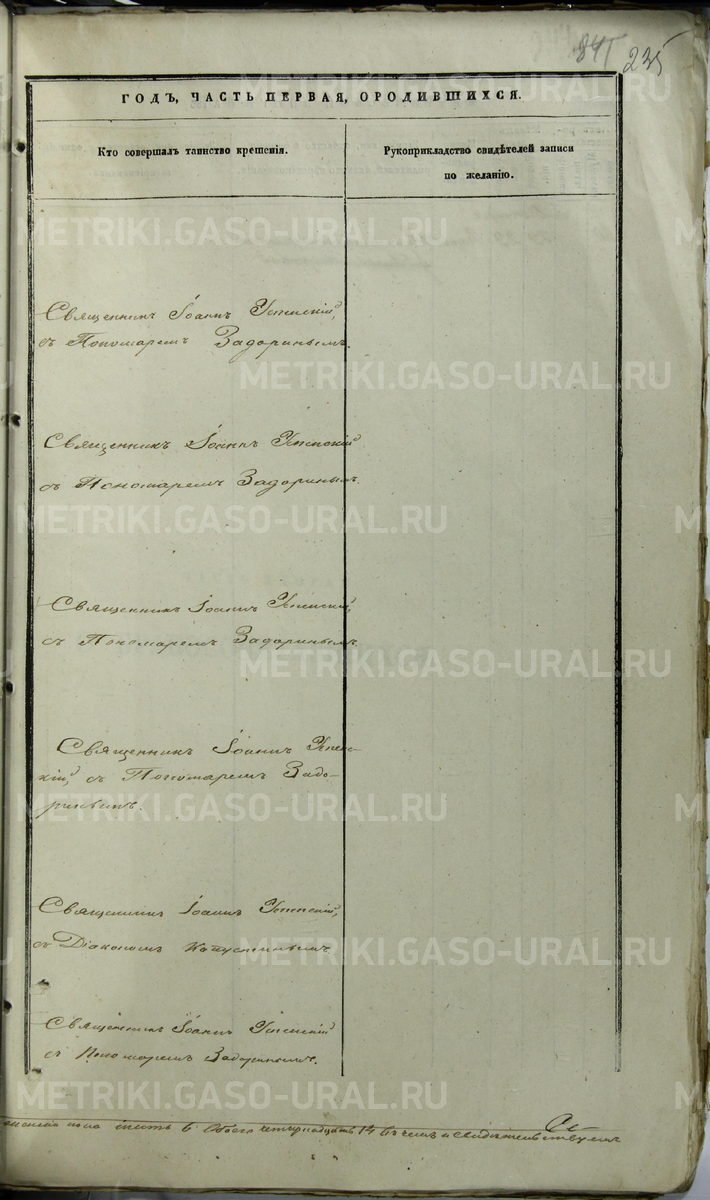 841
235
ГОДЪ, ЧАСТЬ ПЕРВАЯ, О РОДИВШИХСЯ.
Кто совершалъ таинство крещенія.
Рукоприкладство свидѣтелей записи
по желанію.
Священникъ Іоаннъ Успенскій,
съ Пономаремъ Задоринымъ.
Священникъ Іоаннъ Успенскій
съ Пономаремъ Задоринымъ.
Священникъ Іоаннъ Успенскій,
съ Пономаремъ Задоринымъ.
Священникъ Іоаннъ Успен-
скій, съ Пономаремъ Задо-
ринымъ.
Священникъ Іоаннъ Успенскій,
съ Діакономъ Капустинымъ
Священникъ Іоаннъ Успенскій
съ Пономаремъ Задоринымъ.
пола шесть 6 обоего четырнадцать 14 въ чемъ и свидѣтельствуемъ
METRIKI.GASO-URAL.RU